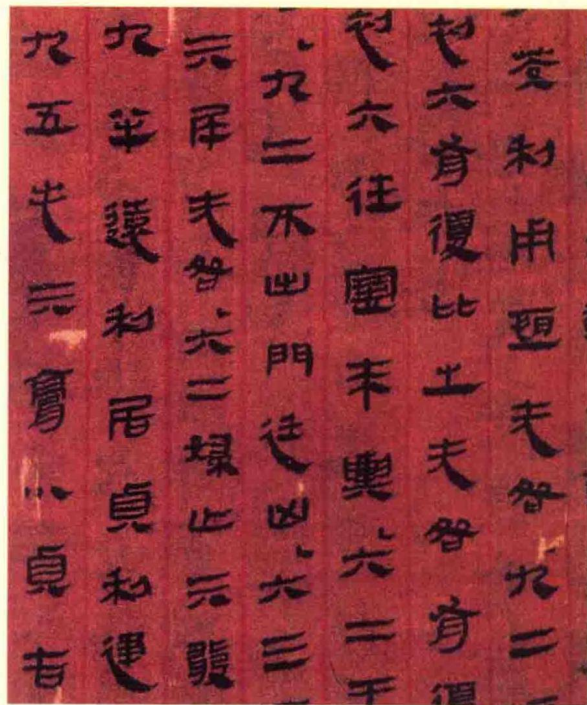 茭利用恒无咎九二
初六有復比之无咎有復
初六往蹇來輿·六二王
·九二不出門廷凶·六三
亓尾无咎·六二婦亡亓發
九半遠利居貞利建
九五屯亓膏小貞吉